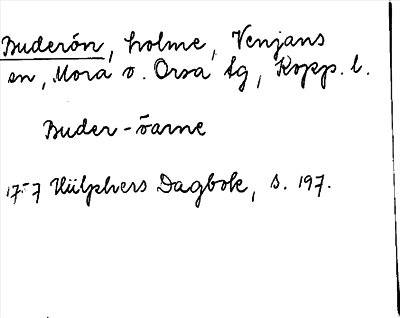 Buderön, holme, Venjans
sn, Mora o. Orsa tg, Kopp. l.
Buder-öarne
1757 Hülphers Dagbok, s. 197.